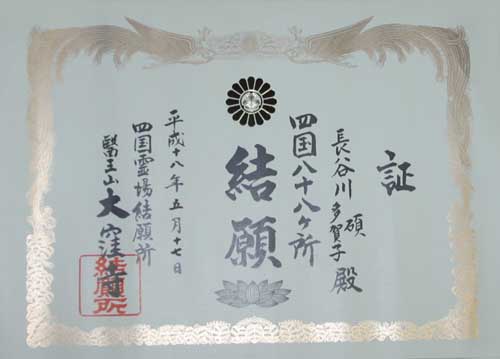 証
長谷川 碩
多賀子 殿
四国八十八ヶ所
結願
平成十八年五月十七日
四国霊場結願所
醫王山 大窪寺
結願所